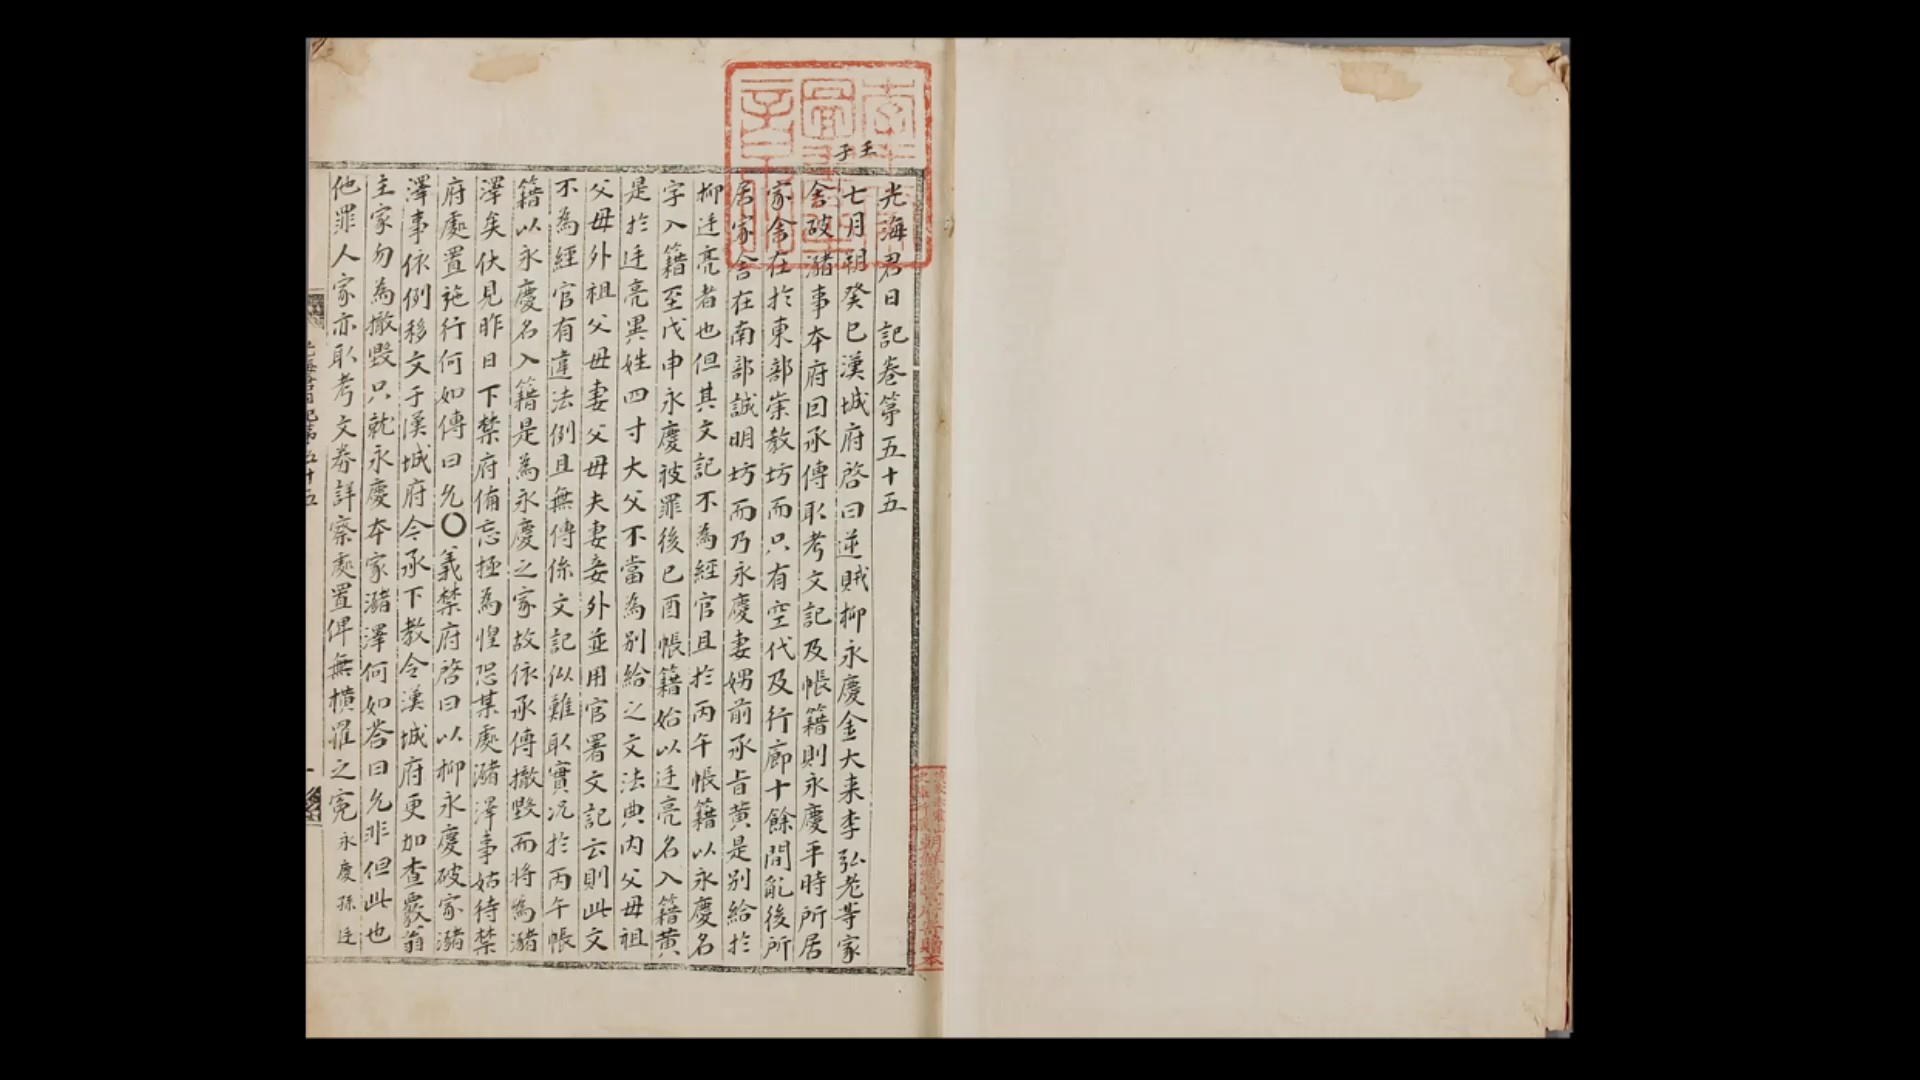 壬子
光海君日記卷第五十五
七月朔癸巳漢城府啓曰逆賊柳永慶金大来李弘老等家
舍破瀦事本府回承傳取考文記及帳籍則永慶平時所居
家舍在於東部崇教坊而只有空代及行廊十餘間亂後所
居家舍在南部誠明坊而乃永慶妻娚前承旨黄是别給於
柳廷亮者也但其文記不為經官且於丙午帳籍以永慶名
字入籍至戊申永慶被罪後己酉帳籍始以廷亮名入籍黄
是於廷亮異姓四寸大父不當為别給之文法典内父母祖
父母外祖父母妻父母夫妻妾外並用官署文記云則此文
不為經官有違法例且無傳係文記似難取實况於丙午帳
籍以永慶名入籍是為永慶之家故依承傳撤毀而將為瀦
澤矣伏見昨日下禁府備忘極為惶恐某處瀦澤事姑待禁
府處置施行何如傳曰允〇義禁府啓曰以柳永慶破家瀦
澤事依例移文于漢城府令承下教令漢城府更加查覈翁
主家勿為撤毀只就永慶本家瀦澤何如答曰允非但此也
他罪人家亦取考文券詳察處置俾無横罹之寃永慶孫廷
朝鮮總督府寄贈本